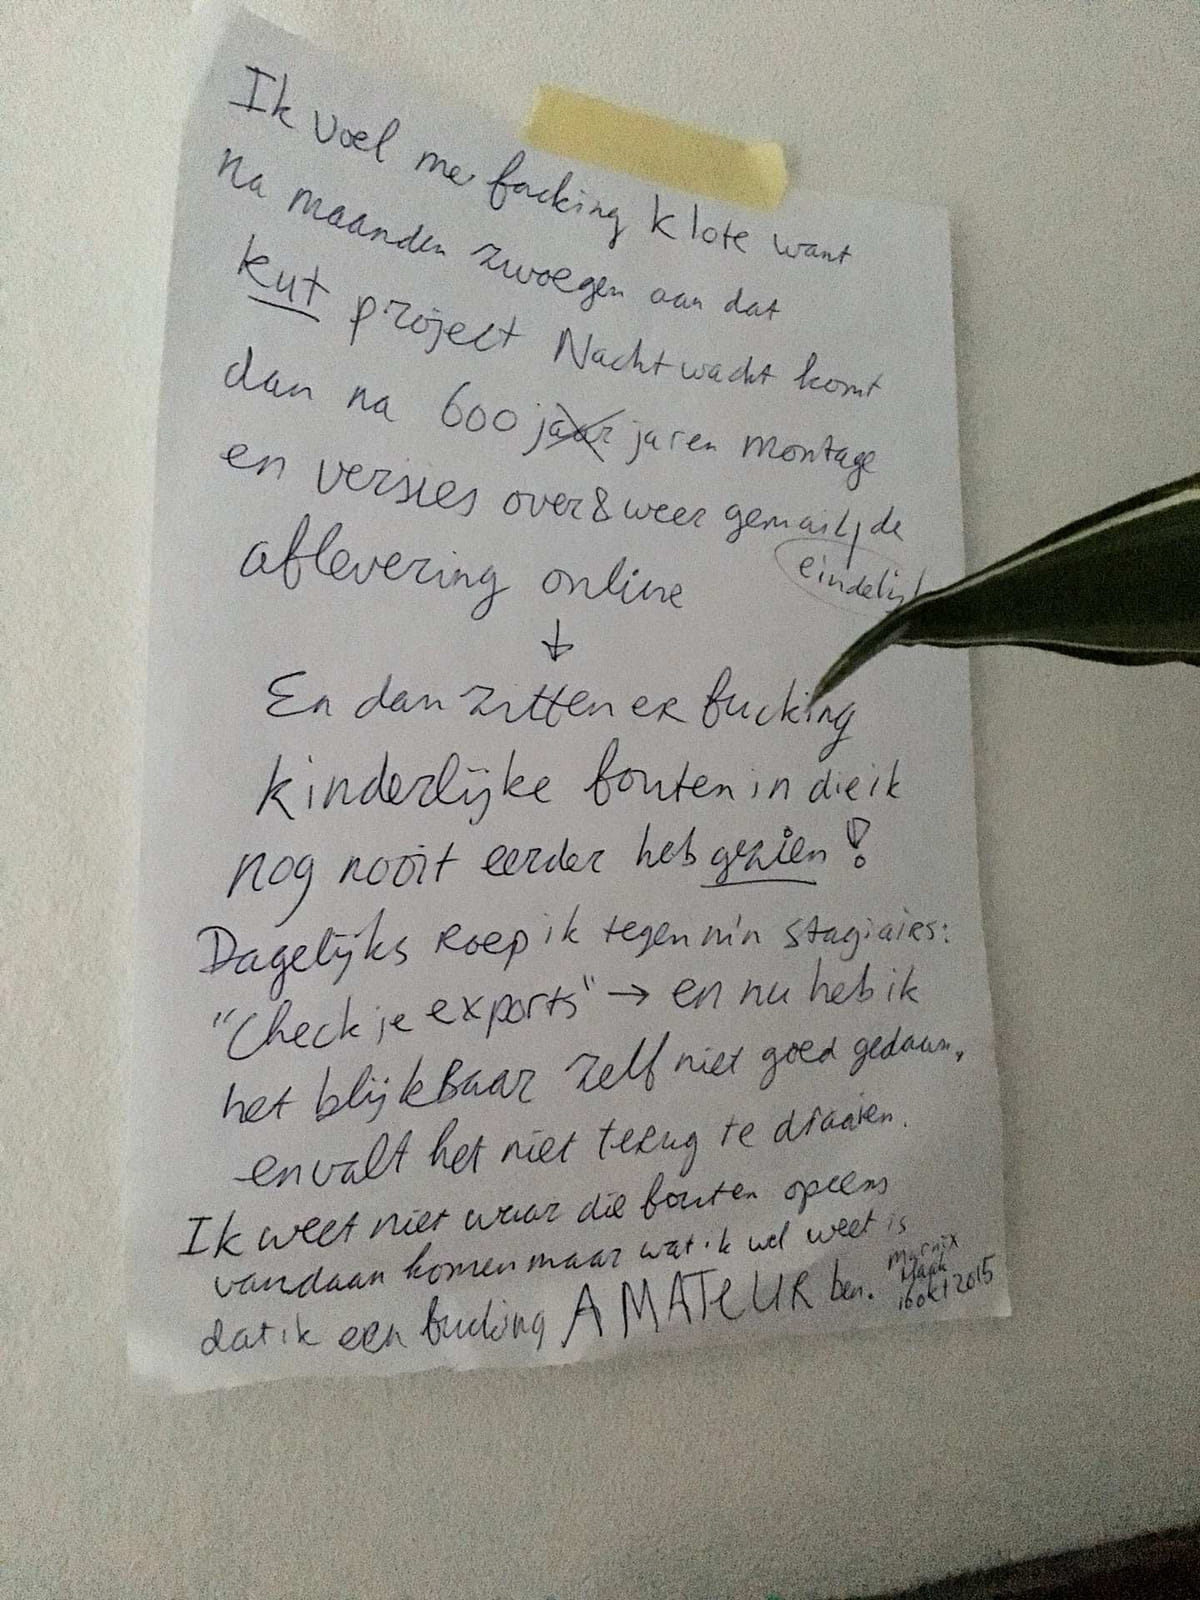 Ik voel me fucking klote want
na maanden zwoegen aan dat
kut project Nachtwacht komt
dan na 600 jaar jaren montage
en versies over & weer gemail, de
eindelijk
aflevering online
↓
En dan zitten er fucking
kinderlijke fouten in die ik
nog nooit eerder heb gezien!
Dagelijks roep ik tegen m'n stagiaires:
"Check je exports" → en nu heb ik
het blijkbaar zelf niet goed gedaan,
en valt het niet terug te draaien.
Ik weet niet waar die fouten opeens
vandaan komen maar wat ik wel weet is
dat ik een fucking AMATEUR ben.
Marnix
Haak
16 okt 2015